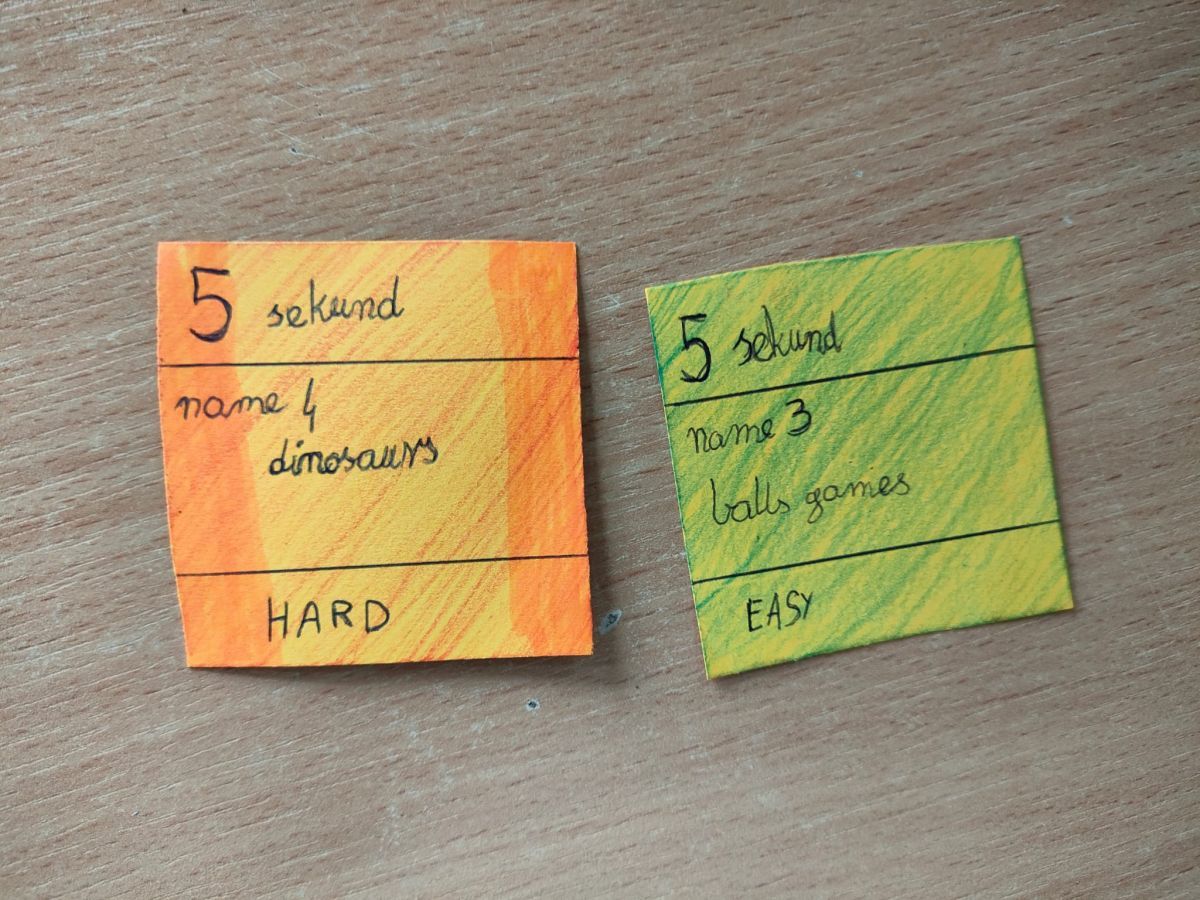 5 sekund
name 4
dinosaurs
HARD
5 sekund
name 3
balls games
EASY